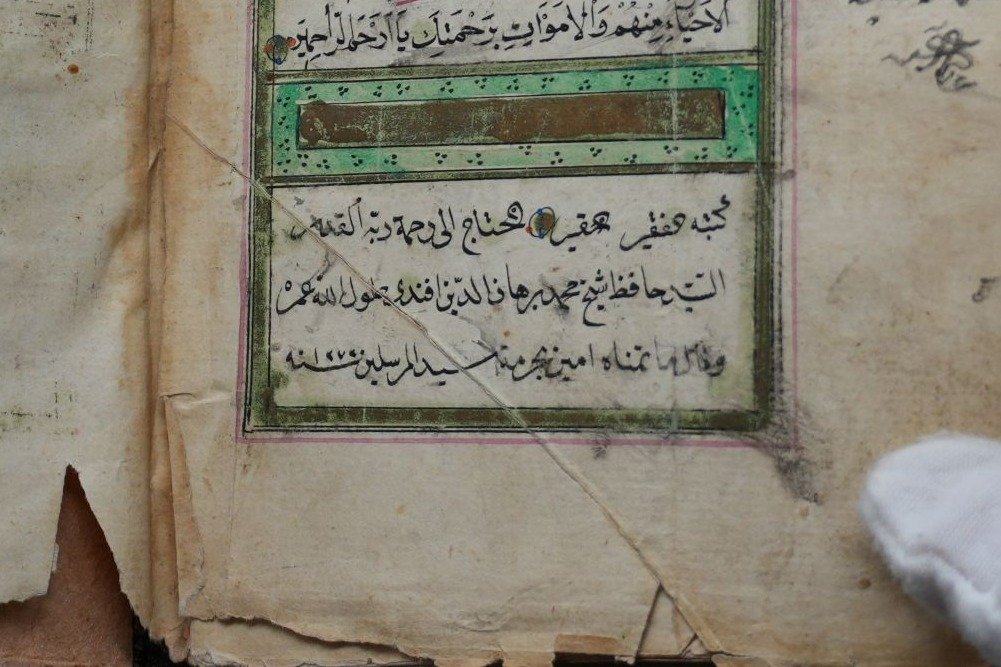 الاَحْيَاءِ مِنْهُمْ وَالْاَمْوَاتِ بِرَحْمَتِكَ يَا اَرْحَمَ الرَّاحِمِينَ
كتبه الفقير الحقير المحتاج الى رحمة ربّه القدير
السّيد حافظ شيخ محمد برهان الدّين افندى طول الله عمره
تمناه امين بحرمة سيد المرسلين سنه ١٢٧٩